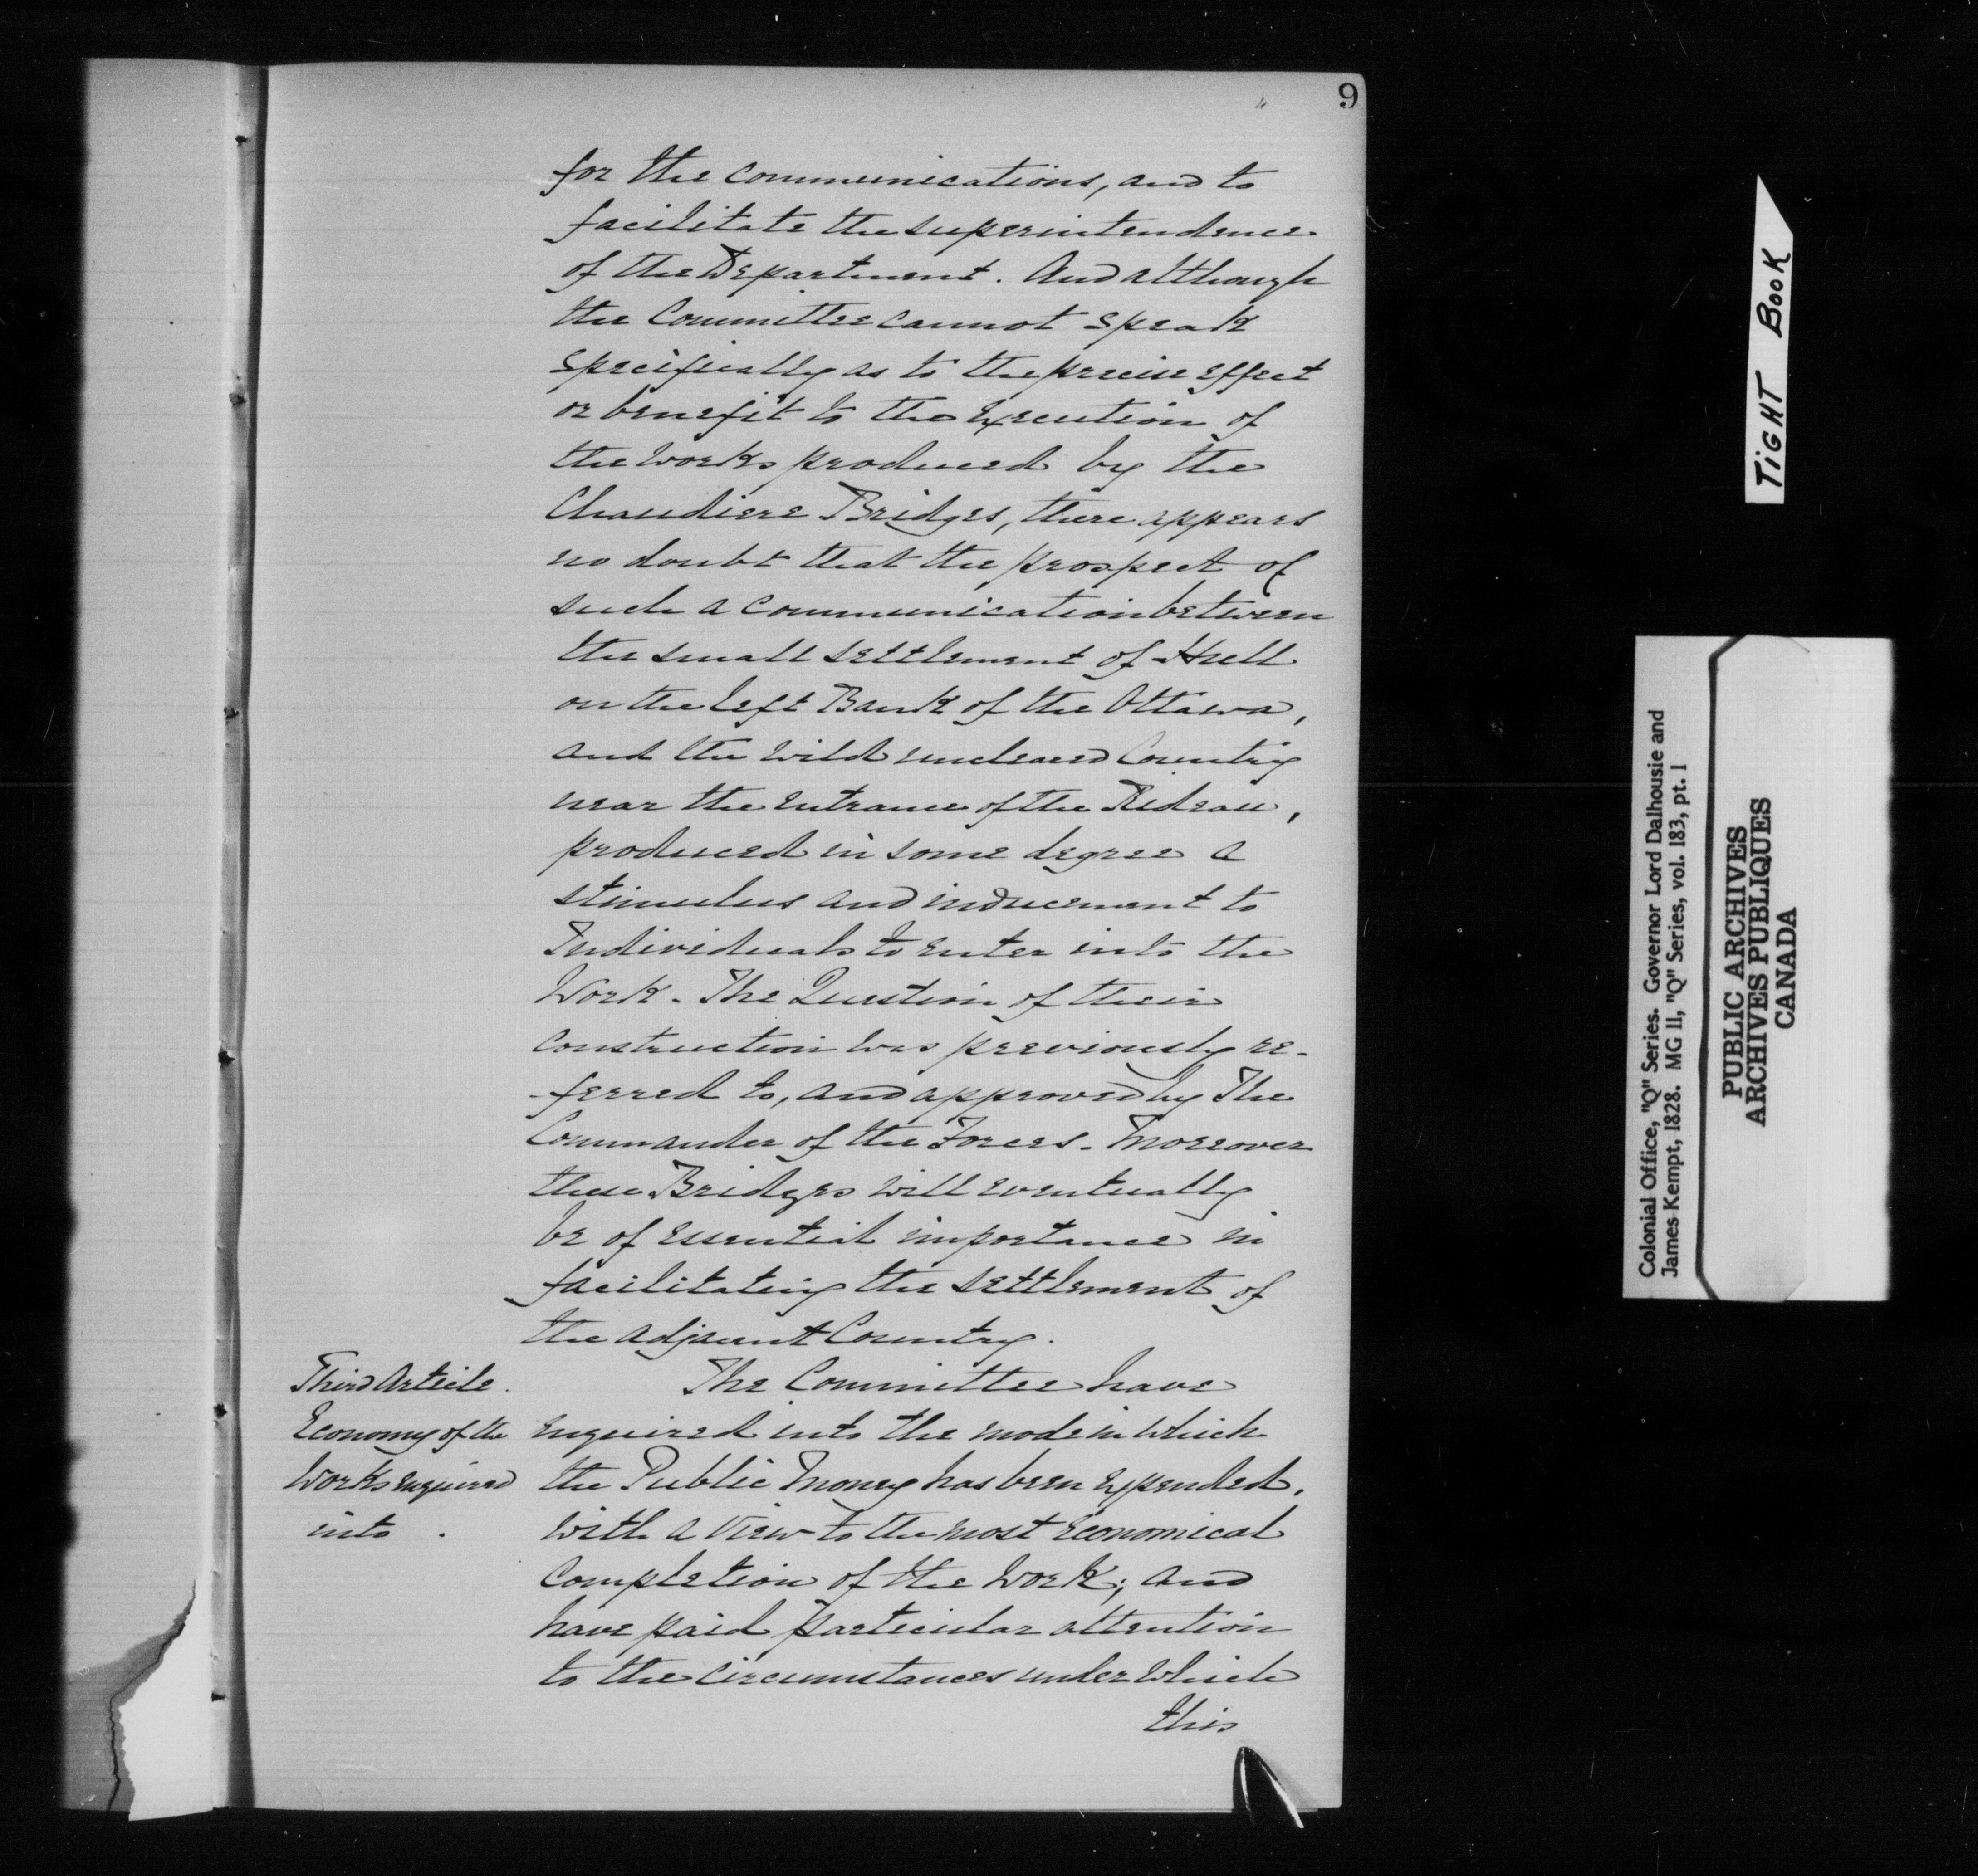 9
for the communications, and to
facilitate the superintendence
of the Department. And although
the Committee cannot speak
specifically as to the precise effect
or benefit to the Execution of
the Works produced by the
Chaudiere Bridges, there appears
no doubt that the prospect of
such a Communication between
the small settlement of Hull
on the left Bank of the Ottawa,
and the wild uncleared Country
near the entrance of the Rideau,
produced in some degree a
stimulus and inducement to
Individuals to enter into the
Work. The Question of their
construction was previously re-
-ferred to, and approved by The
Commander of the Forces. Moreover
these Bridges will eventually
be of essential importance in
facilitating the settlement of
the adjacent Country.
Third Article.
Economy of the
Works enquired
into.
The Committee have
enquired into the mode in which
the Public Money has been expended,
with a View to the most Economical
Completion of the Work; and
have paid particular attention
to the circumstances under which
this
TIGHT BOOK
Colonial Office, "Q" Series. Governor Lord Dalhousie and
James Kempt, 1828. MG 11, "Q" Series, vol. 183, pt. 1
PUBLIC ARCHIVES
ARCHIVES PUBLIQUES
CANADA